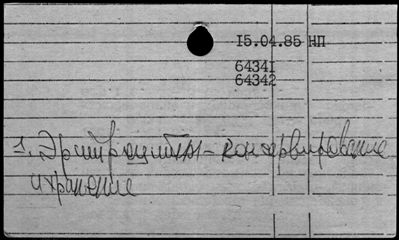 15.04.85 НП
64341
64342
1. Эритроциты - консервирование
и хранение